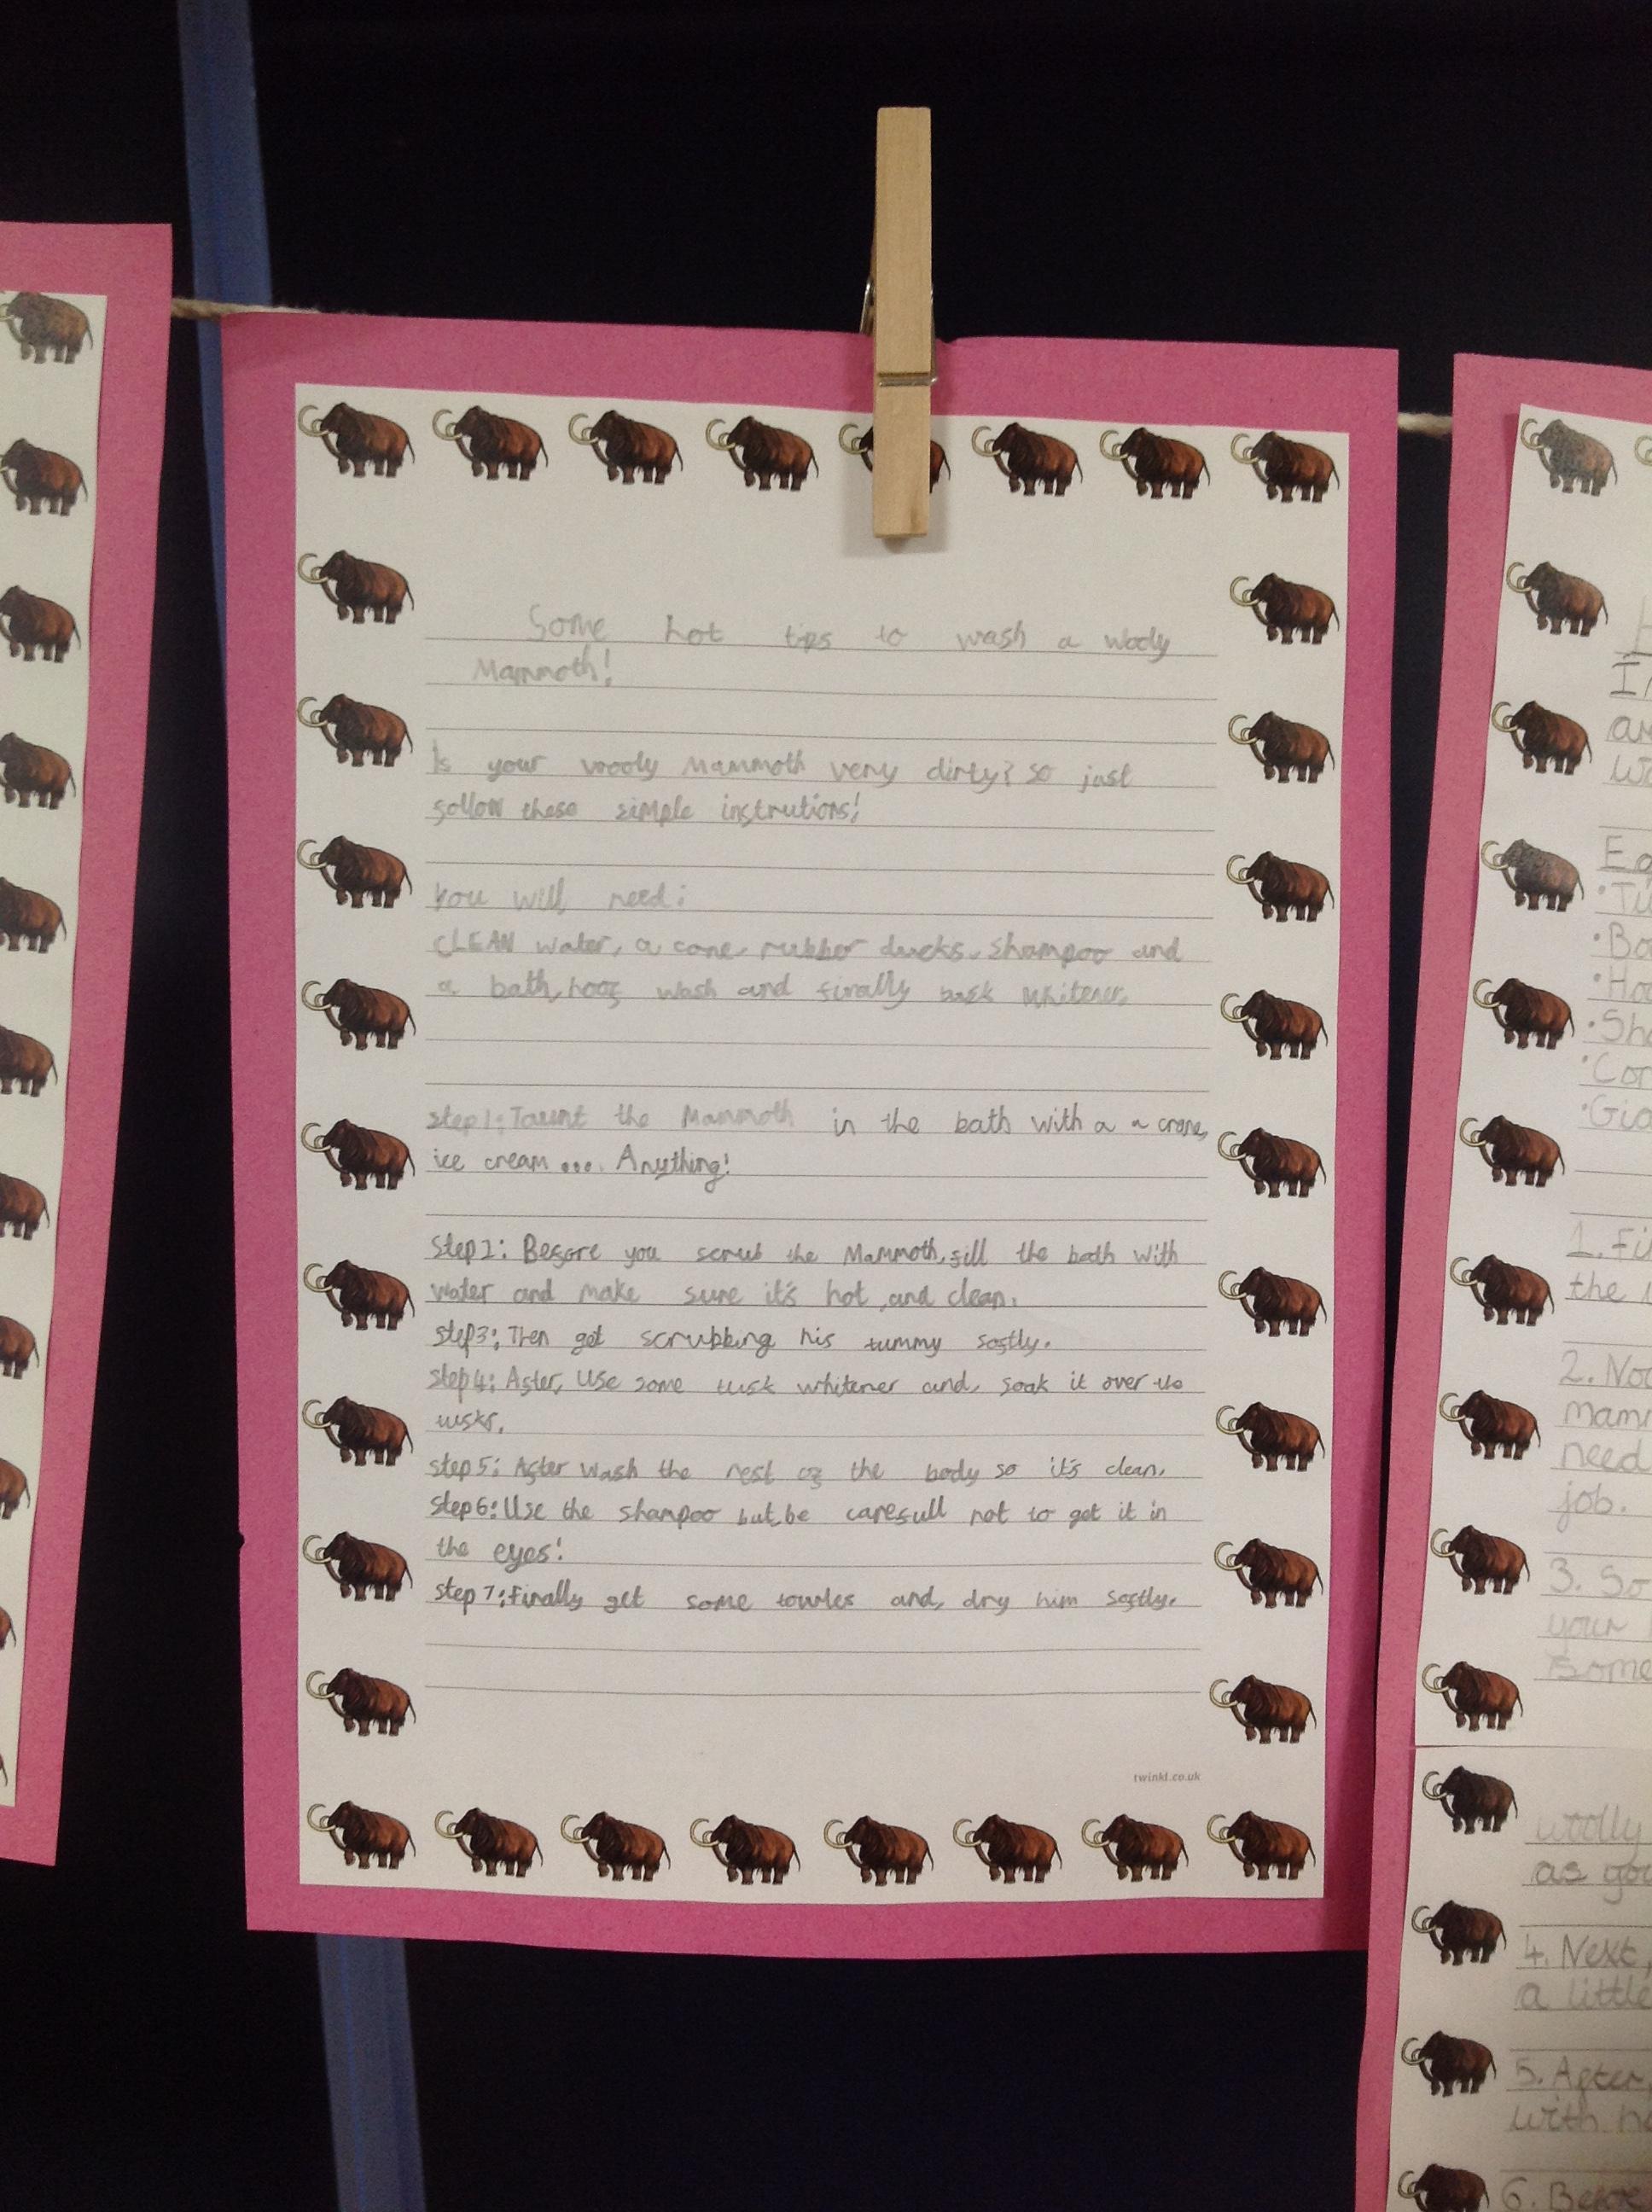 Some hot tips to wash a wooly
Mammoth!
Is your wooly Mammoth very dirty? So just
follow these simple instrutions!
You will need:
CLEAN water, a cane, rubber ducks, shampoo and
a bath, hoof wash and finally tusk whitener.
step1: Taunt the Mammoth in the bath with a a crane,
ice cream... Anything!
Step2: Before you scrub the Mammoth, fill the bath with
water and make sure it's hot, and clean.
step3: Then get scrubbing his tummy softly.
step4: After, Use some tusk whitener and, soak it over the
tusks.
step5: After wash the rest of the body so it's clean.
step6: Use the shampoo but, be carefull not to get it in
the eyes!
step7: Finally get some towles and, dry him softly.
twinkl.co.uk
In
are
Eq
• Bo
• Ho
• Sha
• Cor
• Gia
1. Fi
the
2. No
mam
need
job.
3. So
your
some
woolly
as you
4. Next,
a little
5. After,
with
6. Before